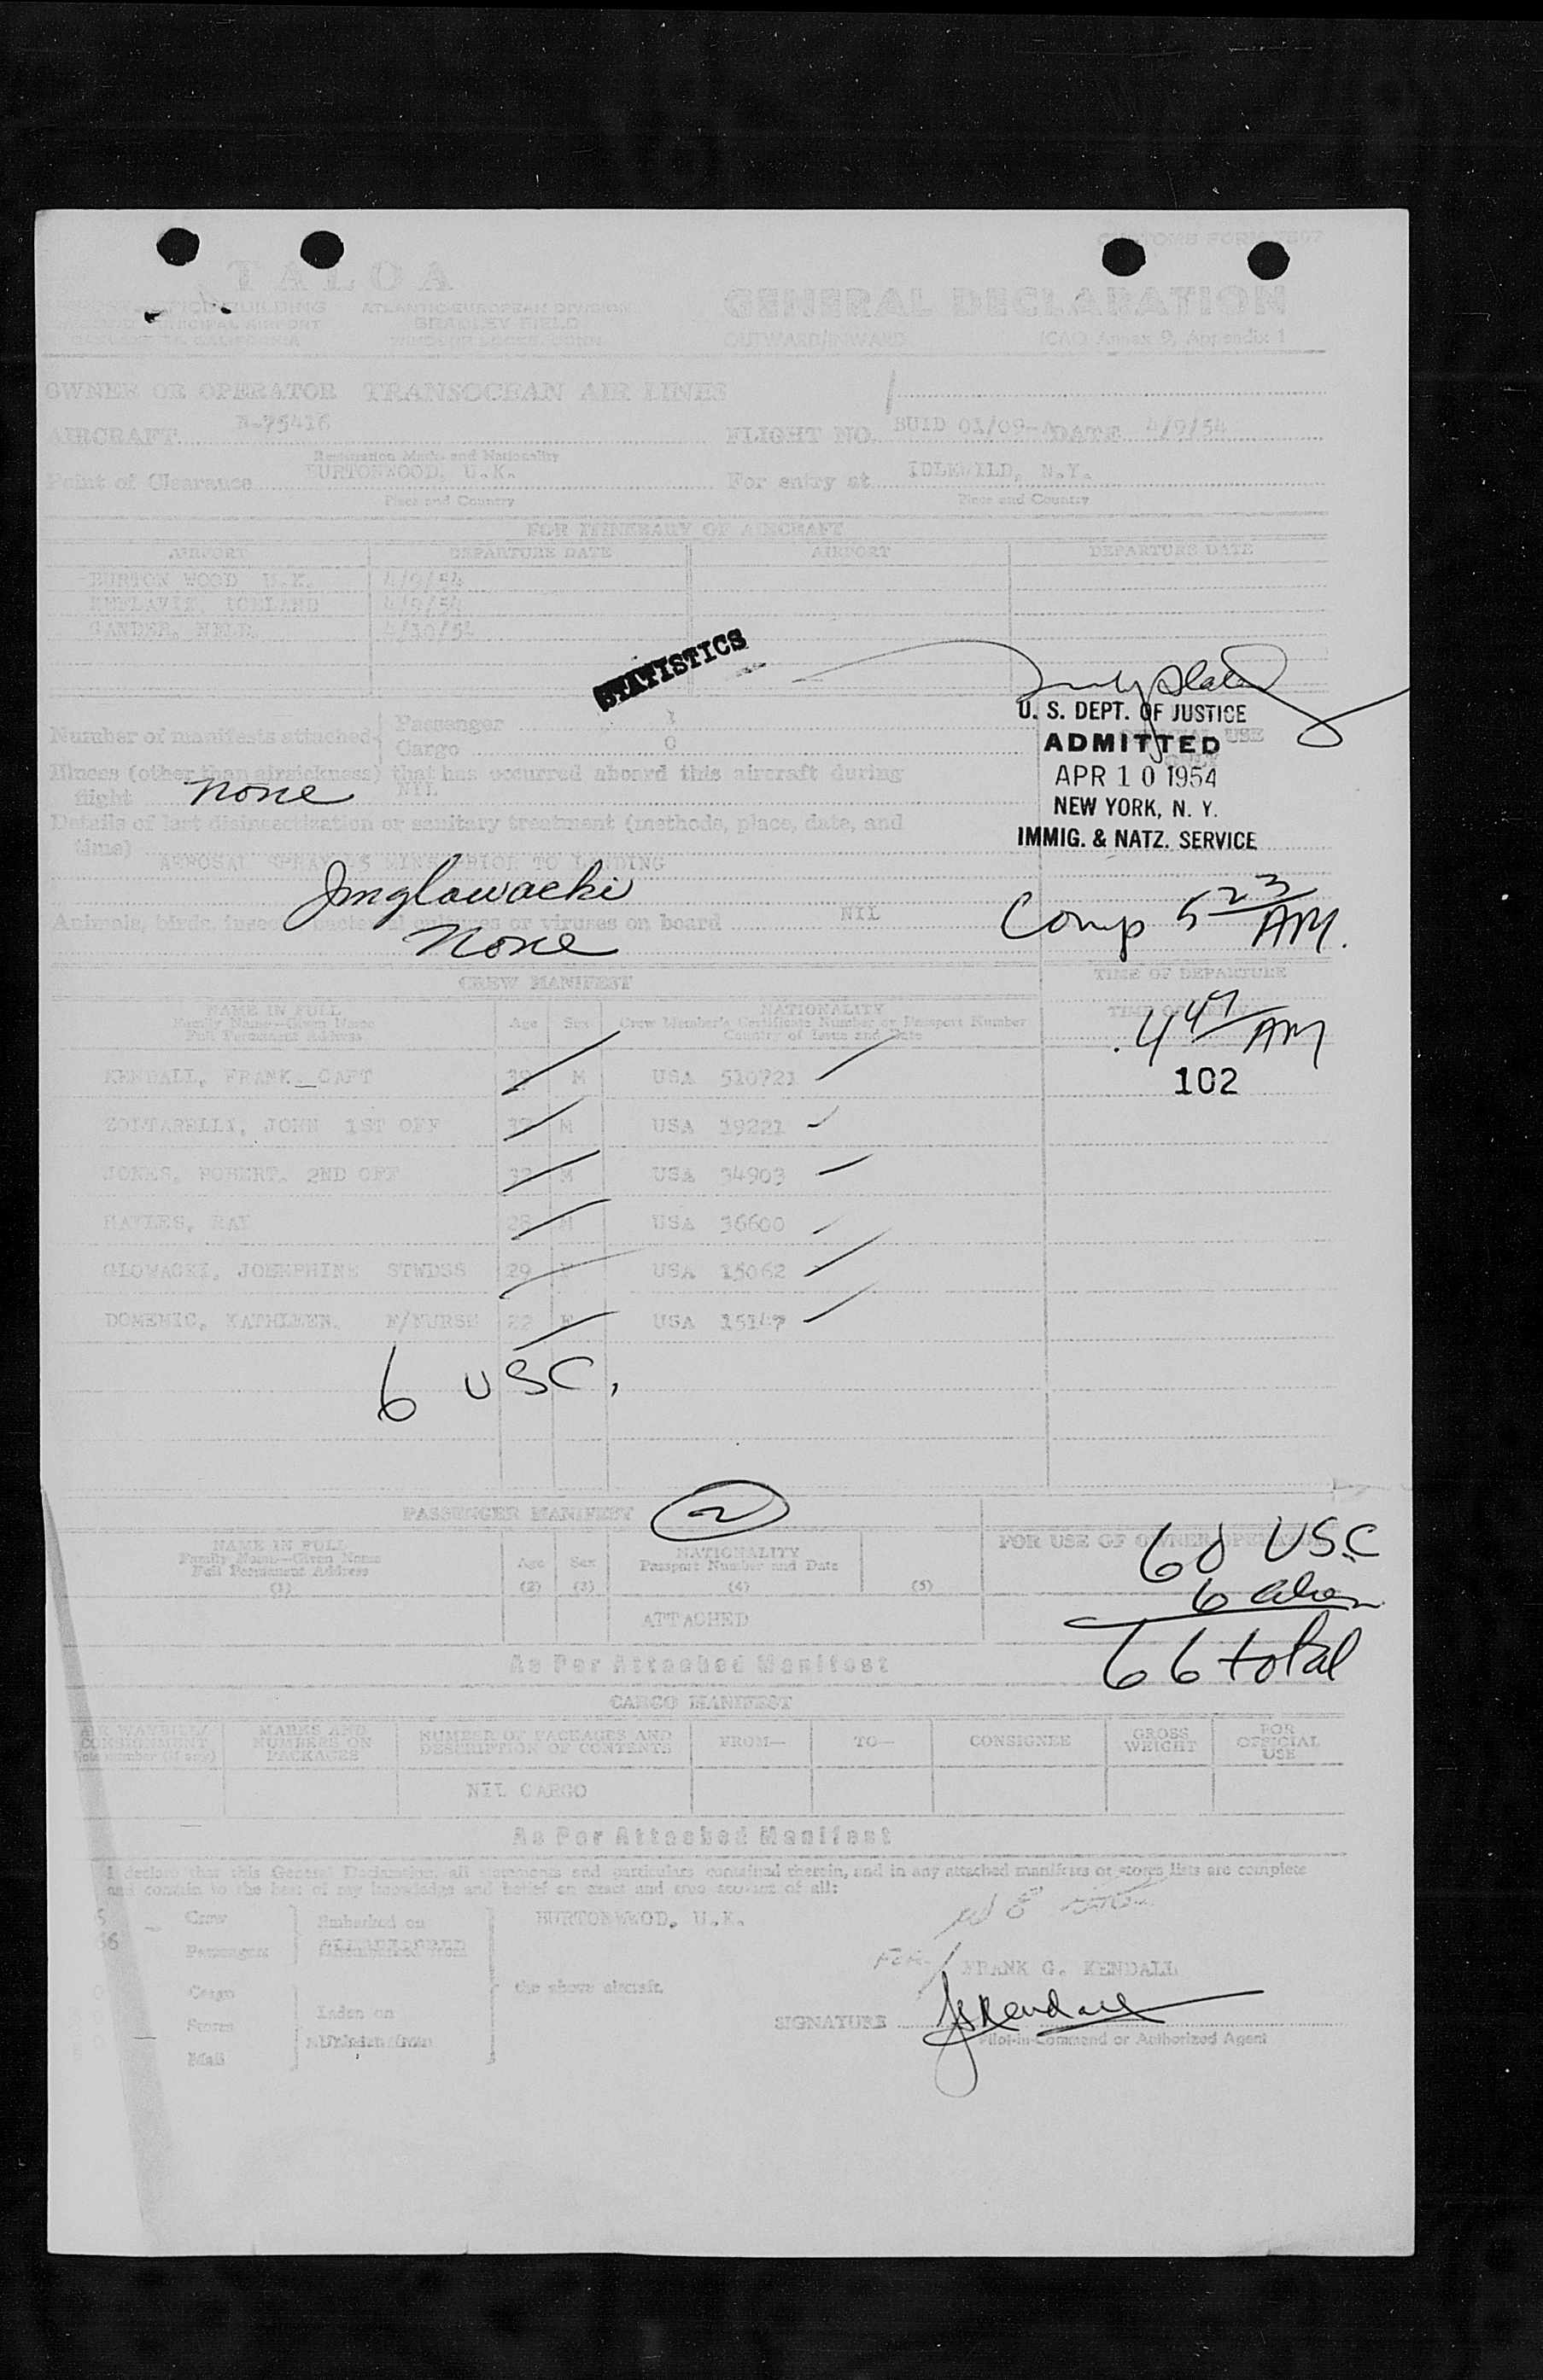 CUSTOMS FORM 7507
TALOA
BUILDING
ATLANTIC-EUROPEAN DIVISION
MUNICIPAL AIRPORT
BRADLEY FIELD
CALIFORNIA
WINDSOR LOCKS, CONN.
GENERAL DECLARATION
OUTWARD/INWARD
ICAO Annex 9, Appendix 1
OWNER OR OPERATOR TRANSOCEAN AIR LINES
AIRCRAFT N-75416
FLIGHT NO. BUID 01/09-A DATE 4/9/54
Registration Marks and Nationality
Point of Clearance BURTONWOOD, U.K.
For entry at IDLEWILD, N.Y.
Place and Country
Place and Country
FOR ITINERARY OF AIRCRAFT
AIRPORT DEPARTURE DATE AIRPORT DEPARTURE DATE
BURTON WOOD U.K. 4/9/54
KEFLAVIK, ICELAND 4/9/54
GANDER, NFLD. 4/10/54
STATISTICS
U. S. DEPT. OF JUSTICE
ADMITTED
APR 10 1954
NEW YORK, N. Y.
IMMIG. & NATZ. SERVICE
OFFICIAL USE
ONLY
Number of manifests attached
Passenger 1
Cargo 0
Illness (other than airsickness) that has occurred aboard this aircraft during
flight none NIL
Details of last disinsectization or sanitary treatment (methods, place, date, and
time)
AEROSAL SPRAY 45 MINS PRIOR TO LANDING
Jmglowacki
Animals, birds, insects, bacterial cultures or viruses on board NIL
none
Comp 5 23 AM.
CREW MANIFEST
TIME OF DEPARTURE
NAME IN FULL
Family Name—Given Name
Full Permanent Address
Age
Sex
NATIONALITY
Crew Member's Certificate Number or Passport Number
Country of Issue and Date
4 47 AM
102
KENDALL, FRANK CAPT 39 M USA 510721
ZOLTARELLI, JOHN 1ST OFF M USA 19221
JONES, ROBERT. 2ND OFF 32 M USA 34903
HAYLES, RAY 28 M USA 36600
GLOWACKI, JOSEPHINE STWDSS 29 F USA 15062
DOMENIC, KATHLEEN. F/NURSE 22 F USA 15147
6 USC.
PASSENGER MANIFEST 2
NAME IN FULL
Family Name—Given Name
Full Permanent Address
(1)
Age
(2)
Sex
(3)
NATIONALITY
Passport Number and Date
(4)
(5)
FOR USE OF OWNER OPERATOR
60 USC
6 alien
66 total
ATTACHED
As Per Attached Manifest
CARGO MANIFEST
AIR WAYBILL/
CONSIGNMENT
Note number (if any)
MARKS AND
NUMBERS ON
PACKAGES
NUMBER OF PACKAGES AND
DESCRIPTION OF CONTENTS
FROM—
TO—
CONSIGNEE
GROSS
WEIGHT
FOR
OFFICIAL
USE
NIL CARGO
As Per Attached Manifest
I declare that this General Declaration, all statements and particulars contained therein, and in any attached manifests or stores lists are complete
and contain to the best of my knowledge and belief an exact and true account of all:
Crew
Passengers
Embarked on
BURTONWOOD, U.K.
Cargo
Stores
Mail
Laden on
the above aircraft.
For/ FRANK G. KENDALL
SIGNATURE
Pilot-in-Command or Authorized Agent